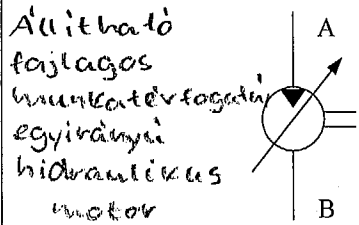 Állítható
fajlagos
munkatérfogatú,
egyirányú
hidraulikus
motor
A
B